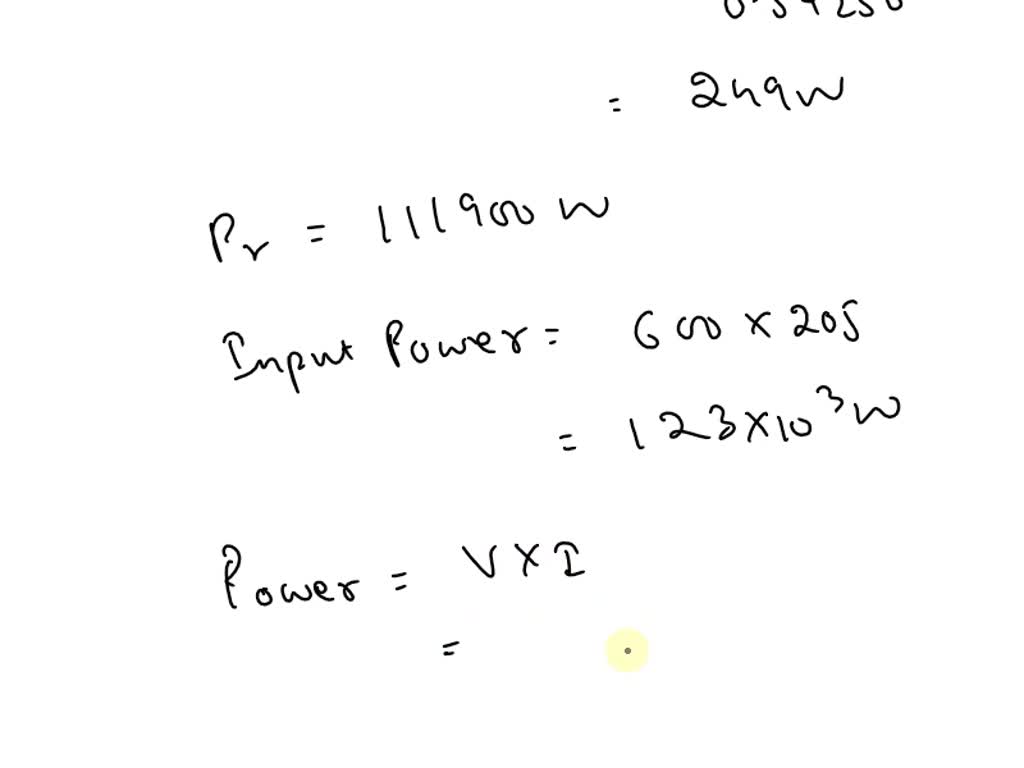 = 249W
Pr = 111900 W
Input Power = 600 × 205
= 123×10³ W
Power = V × I
=